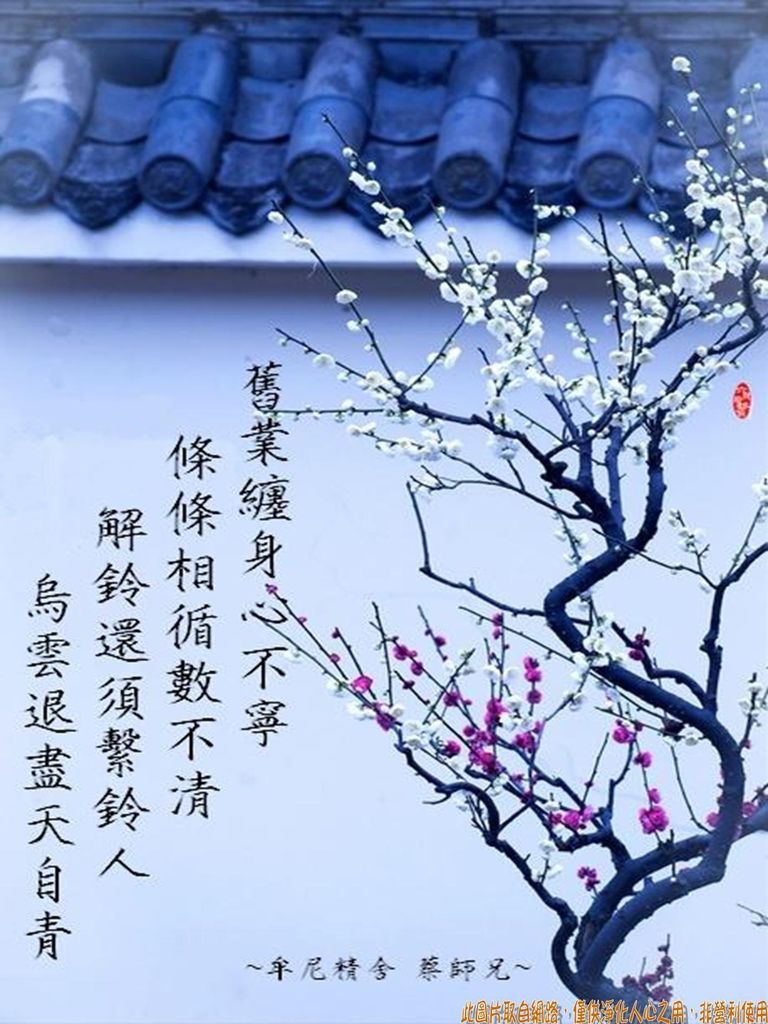 舊業纏身心不寧
條條相循數不清
解鈴還須繫鈴人
烏雲退盡天自青
~牟尼精舍 蔡師兄~
此圖片取自網路，僅供淨化人心之用，非營利使用